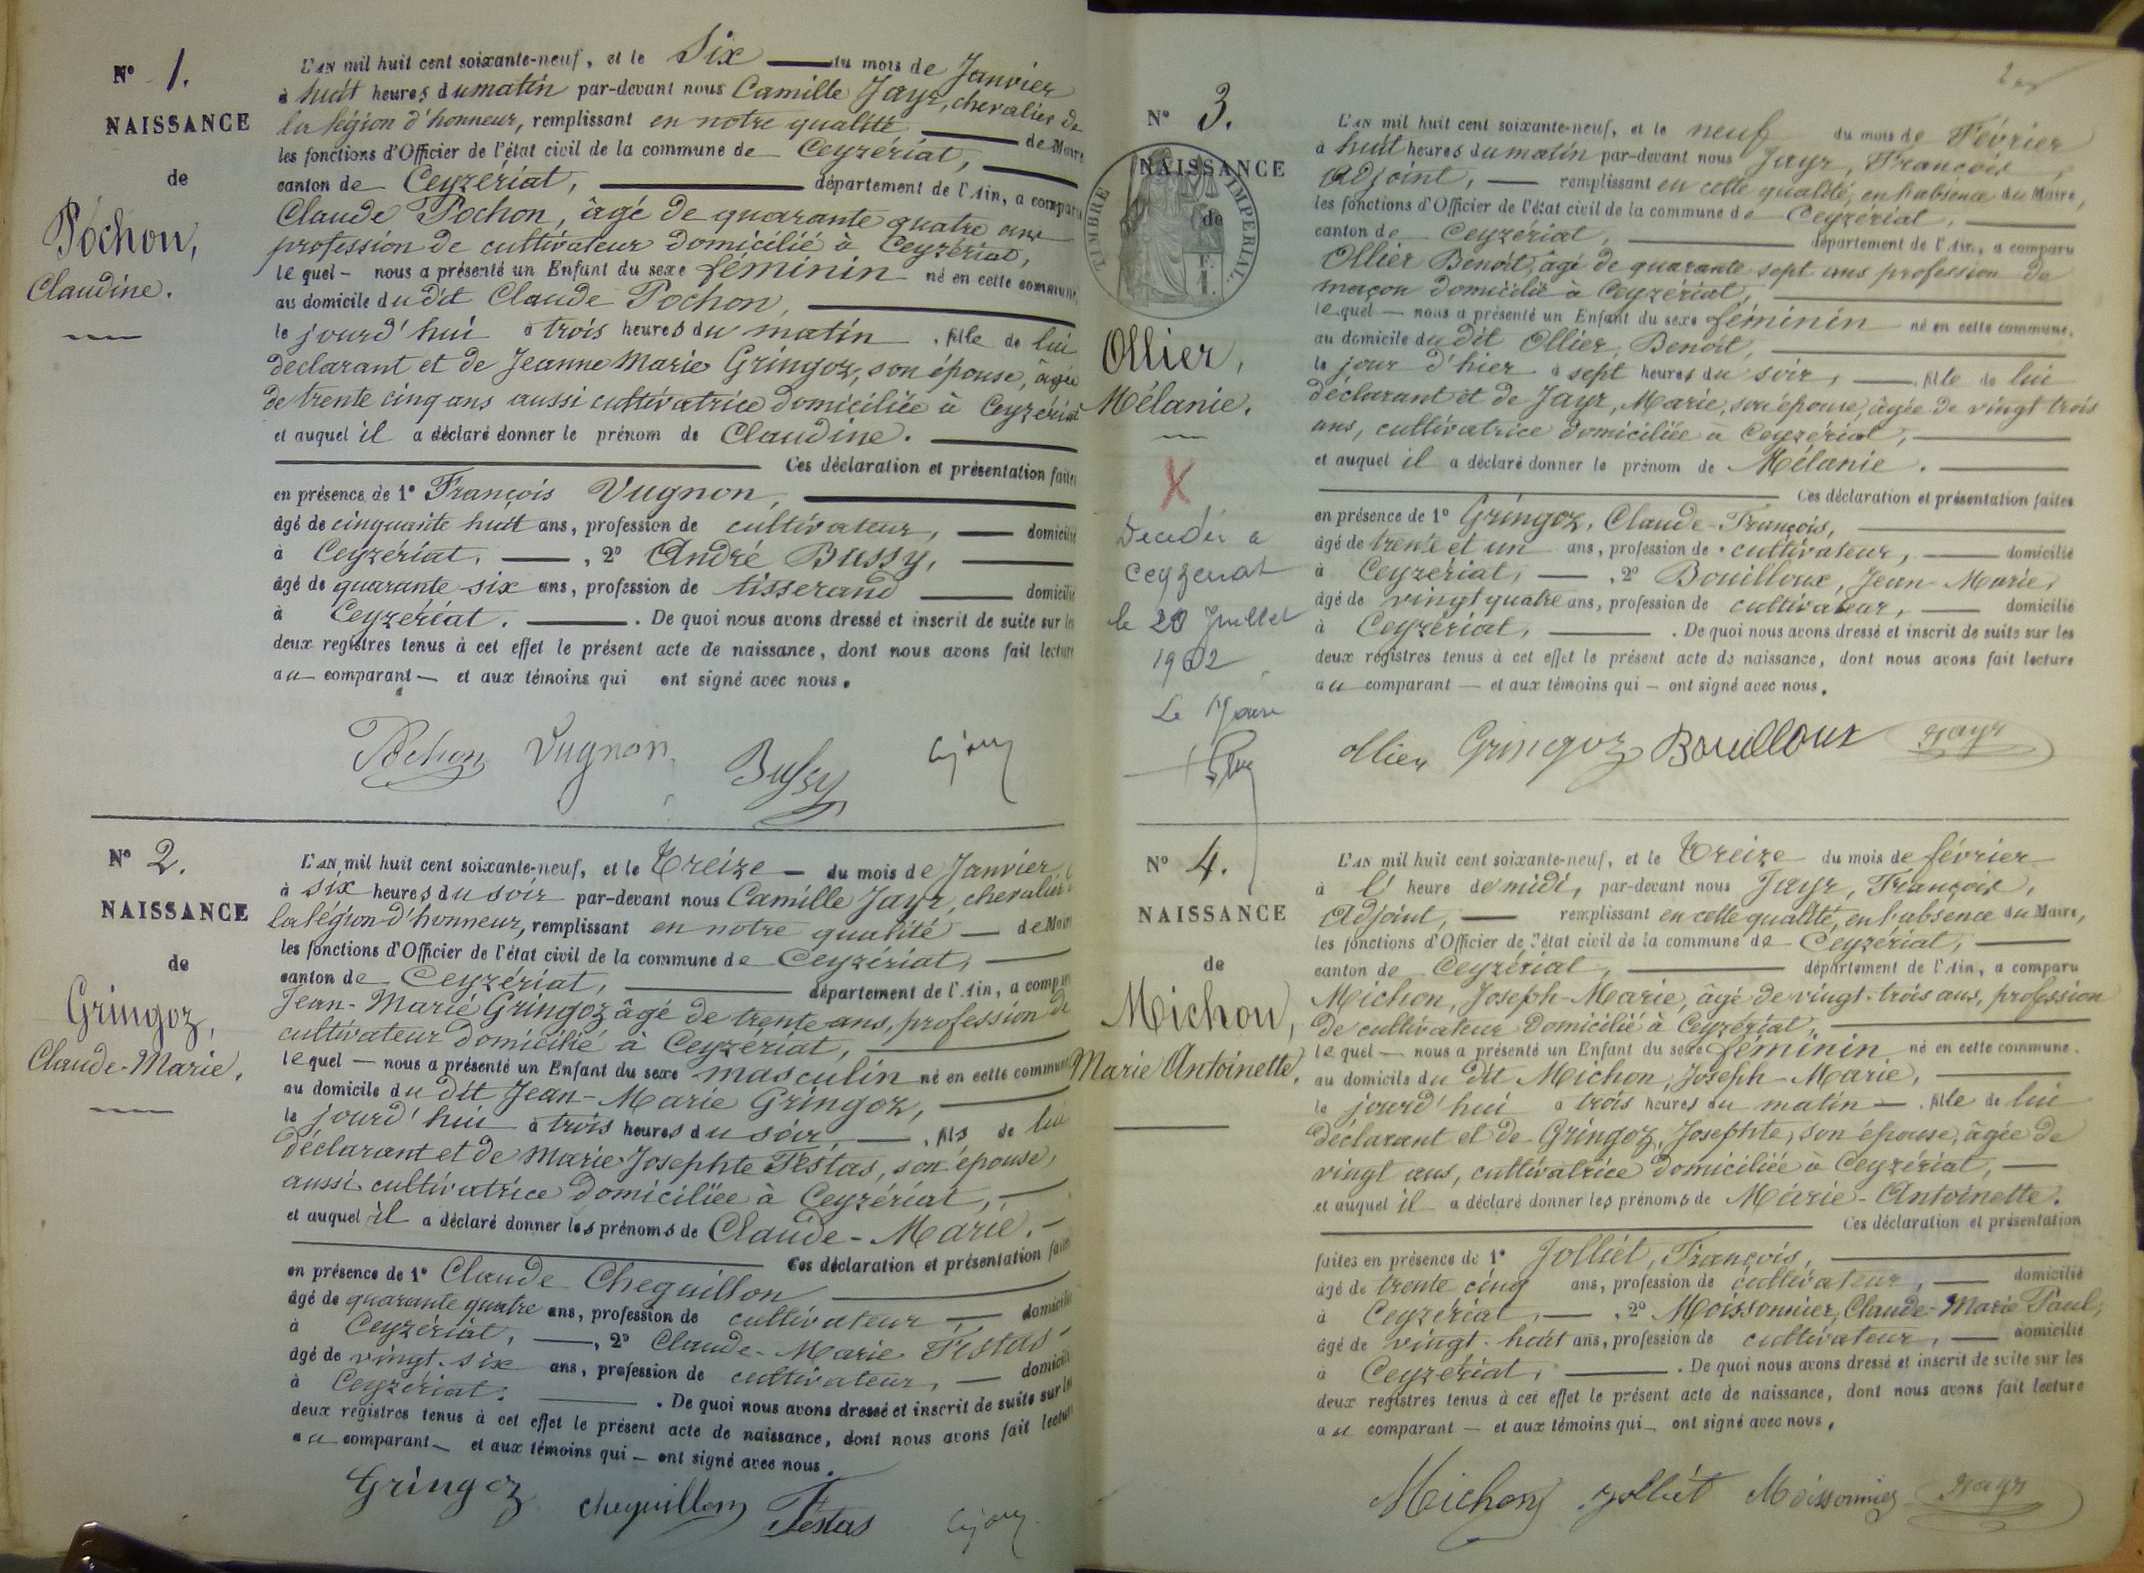 N° 1.
NAISSANCE
de
Pochon,
Claudine.
L'AN mil huit cent soixante-neuf, et le Six du mois de Janvier
à huit heures du matin par-devant nous Camille Jayr, chevalier de
la légion d'honneur, remplissant en notre qualité de Maire
les fonctions d'Officier de l'état civil de la commune de Ceyzériat,
canton de Ceyzériat, département de l'Ain, a comparu
Claude Pochon, âgé de quarante quatre ans
profession de cultivateur domicilié à Ceyzériat,
lequel nous a présenté un Enfant du sexe féminin né en cette commune,
au domicile du dit Claude Pochon,
le jourd'hui à trois heures du matin, fille de lui
déclarant et de Jeanne Marie Gringoz, son épouse, âgée
de trente cinq ans aussi cultivatrice domiciliée à Ceyzériat
et auquel il a déclaré donner le prénom de Claudine.
Ces déclaration et présentation faites
en présence de 1° François Vugnon,
âgé de cinquante huit ans, profession de cultivateur, domicilié
à Ceyzériat, 2° André Bussy,
âgé de quarante six ans, profession de tisserand domicilié
à Ceyzériat. De quoi nous avons dressé et inscrit de suite sur les
deux registres tenus à cet effet le présent acte de naissance, dont nous avons fait lecture
au comparant et aux témoins qui ont signé avec nous.
Pochon Vugnon Bussy
N° 2.
NAISSANCE
de
Gringoz,
Claude-Marie,
L'AN mil huit cent soixante-neuf, et le Treize du mois de Janvier
à six heures du soir par-devant nous Camille Jayr, chevalier
la légion d'honneur, remplissant en notre qualité de Maire
les fonctions d'Officier de l'état civil de la commune de Ceyzériat,
canton de Ceyzériat, département de l'Ain, a comparu
Jean-Marie Gringoz âgé de trente ans, profession de
cultivateur domicilié à Ceyzériat,
lequel nous a présenté un Enfant du sexe masculin né en cette commune
au domicile du dit Jean-Marie Gringoz,
le jourd'hui à trois heures du soir, fils de lui
déclarant et de Marie Josephte Festas, son épouse,
aussi cultivatrice domiciliée à Ceyzériat,
et auquel il a déclaré donner les prénoms de Claude-Marie.
Ces déclaration et présentation faites
en présence de 1° Claude Cheguillon
âgé de quarante quatre ans, profession de cultivateur, domicilié
à Ceyzériat, 2° Claude-Marie Festas
âgé de vingt-six ans, profession de cultivateur, domicilié
à Ceyzériat. De quoi nous avons dressé et inscrit de suite sur les
deux registres tenus à cet effet le présent acte de naissance, dont nous avons fait lecture
au comparant et aux témoins qui ont signé avec nous.
Gringoz Cheguillon Festas
N° 3.
NAISSANCE
de
TIMBRE IMPERIAL
Ollier,
Mélanie.
X
Décédée à
Ceyzériat
le 20 Juillet
1902
Le Maire
L'AN mil huit cent soixante-neuf, et le neuf du mois de Février
à huit heures du matin par-devant nous Jayr, François,
Adjoint, remplissant en cette qualité, en l'absence du Maire,
les fonctions d'Officier de l'état civil de la commune de Ceyzériat,
canton de Ceyzériat, département de l'Ain, a comparu
Ollier Benoît, âgé de quarante sept ans profession de
maçon domicilié à Ceyzériat,
lequel nous a présenté un Enfant du sexe féminin né en cette commune,
au domicile du dit Ollier, Benoît,
le jour d'hier à sept heures du soir, fille de lui
déclarant et de Jayr, Marie, son épouse, âgée de vingt trois
ans, cultivatrice domiciliée à Ceyzériat,
et auquel il a déclaré donner le prénom de Mélanie.
Ces déclaration et présentation faites
en présence de 1° Gringoz, Claude-François,
âgé de trente et un ans, profession de cultivateur, domicilié
à Ceyzériat, 2° Bouilloux, Jean-Marie,
âgé de vingt quatre ans, profession de cultivateur, domicilié
à Ceyzériat, . De quoi nous avons dressé et inscrit de suite sur les
deux registres tenus à cet effet le présent acte de naissance, dont nous avons fait lecture
au comparant et aux témoins qui ont signé avec nous.
Ollier Gringoz Bouilloux Jayr
N° 4.
NAISSANCE
de
Michon,
Marie Antoinette.
L'AN mil huit cent soixante-neuf, et le Treize du mois de février
à l' heure de midi, par-devant nous Jayr, François,
Adjoint, remplissant en cette qualité, en l'absence du Maire,
les fonctions d'Officier de l'état civil de la commune de Ceyzériat,
canton de Ceyzériat, département de l'Ain, a comparu
Michon, Joseph-Marie, âgé de vingt-trois ans, profession
de cultivateur domicilié à Ceyzériat,
lequel nous a présenté un Enfant du sexe féminin né en cette commune.
au domicile du dit Michon, Joseph-Marie,
le jourd'hui à trois heures du matin, fille de lui
déclarant et de Gringoz, Josephte, son épouse, âgée de
vingt ans, cultivatrice domiciliée à Ceyzériat,
et auquel il a déclaré donner les prénoms de Marie-Antoinette.
Ces déclaration et présentation
faites en présence de 1° Jolliet, François,
âgé de trente cinq ans, profession de cultivateur, domicilié
à Ceyzériat, 2° Moissonnier, Claude-Marie Paul,
âgé de vingt-huit ans, profession de cultivateur, domicilié
à Ceyzériat, . De quoi nous avons dressé et inscrit de suite sur les
deux registres tenus à cet effet le présent acte de naissance, dont nous avons fait lecture
au comparant et aux témoins qui ont signé avec nous.
Michon Jolliet Moissonnier Jayr